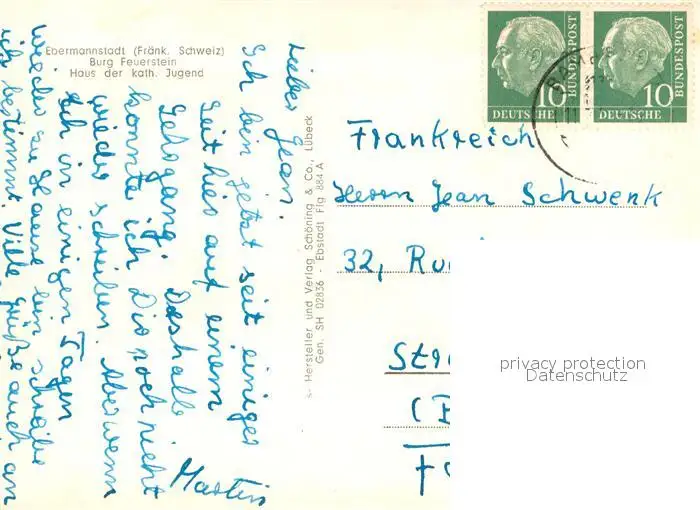 Ebermannstadt (Fränk. Schweiz)
Burg Feuerstein
Haus der kath. Jugend
Lieber Jean.
Ich bin jetzt seit einiger
Zeit hier auf einem
Lehrgang. Deshalb
konnte ich Dir noch nicht
wieder schreiben. Aber wenn
ich in einigen Tagen
wieder zu Hause bin schreibe
ich bestimmt. Viele Grüße auch an
Martin
Hersteller und Verlag Schöning & Co., Lübeck
Gen. SH 02836 - Ebstadt Flg 884 A
10 BUNDESPOST
DEUTSCHE
10 BUNDESPOST
DEUTSCHE
Frankreich
Herrn Jean Schwenk
32, Ru
Str
privacy protection
Datenschutz